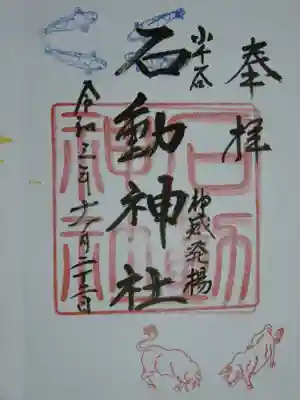 奉拝
小千谷
石動神社
神威発揚
令和三年十一月二十三日
石動
神社